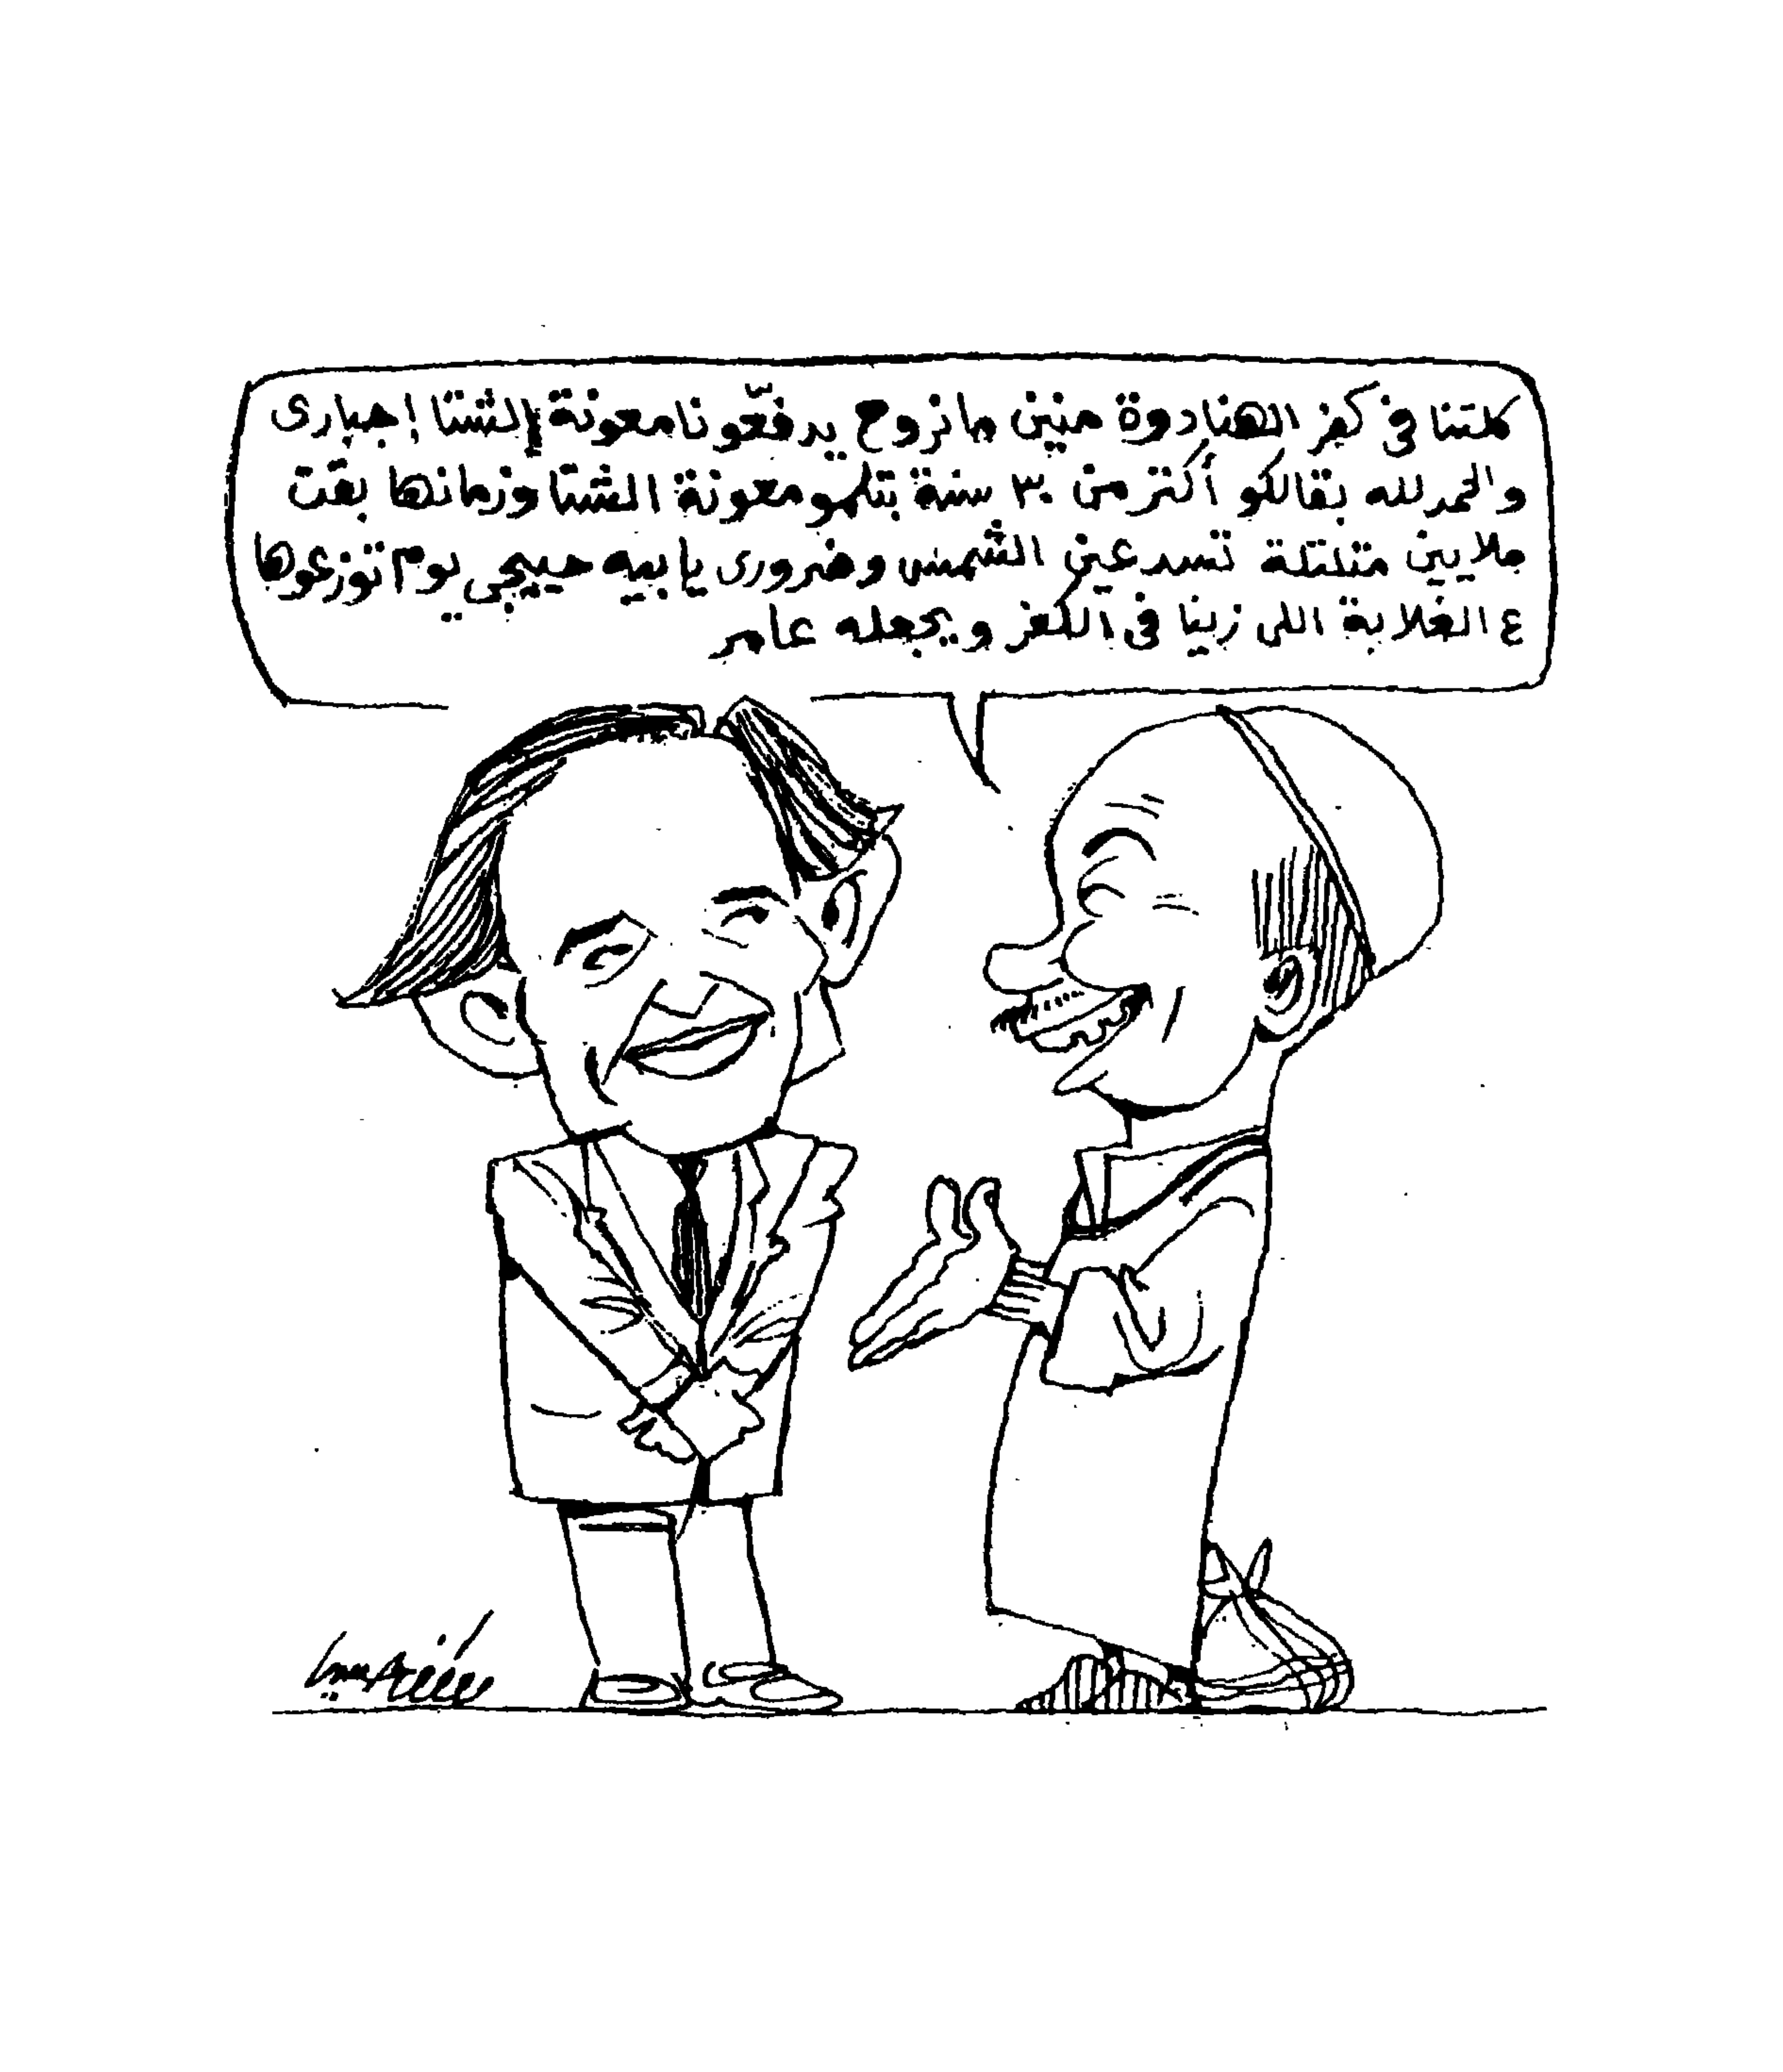 كلتنا فى كفر الهنادوة منين ما نروح يدفّعونا معونة الشتا إجبارى
والحمد لله بقالكو أكتر من ٣٠ سنة بتلمو معونة الشتا وزمانها بقت
ملايين متلتلة تسد عين الشمس وضرورى يا بيه حييجى يوم توزعوها
ع الغلابة اللى زينا فى الكفر ويجعله عامر